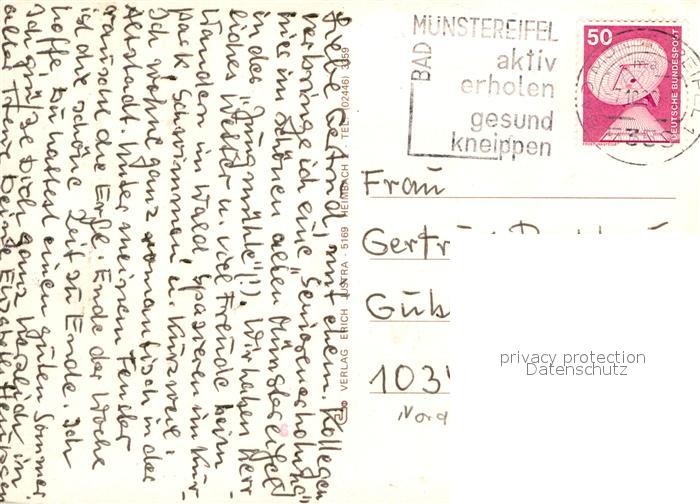 Liebe Gertrud, mit ehem. Kollegen
verbringe ich eine "Seniorenerholung"
hier im schönen alten Münstereifel
in der "Jungmühle" (!). Wir haben Herr-
liches Wetter u. viel Freude beim
Wandern im Wald, Spazieren im Kur-
park, Schwimmen u. Kurzweil.
Ich wohne ganz romantisch in der
Altstadt. Unter meinem Fenster
rauscht die Erft. Ende der Woche
ist die schöne Zeit zu Ende. Ich
hoffe, Du hattest einen guten Sommer
Ich grüße Dich ganz herzlich in
alter Treue Deine Elisabeth
© VERLAG ERICH JUSTRA · 5169 HEIMBACH · TEL. (02446) 3359
BAD
MÜNSTEREIFEL
aktiv
erholen
gesund
kneippen
50
DEUTSCHE BUNDESPOST
Frau
Gertru
Güb
103
Nord
privacy protection
Datenschutz